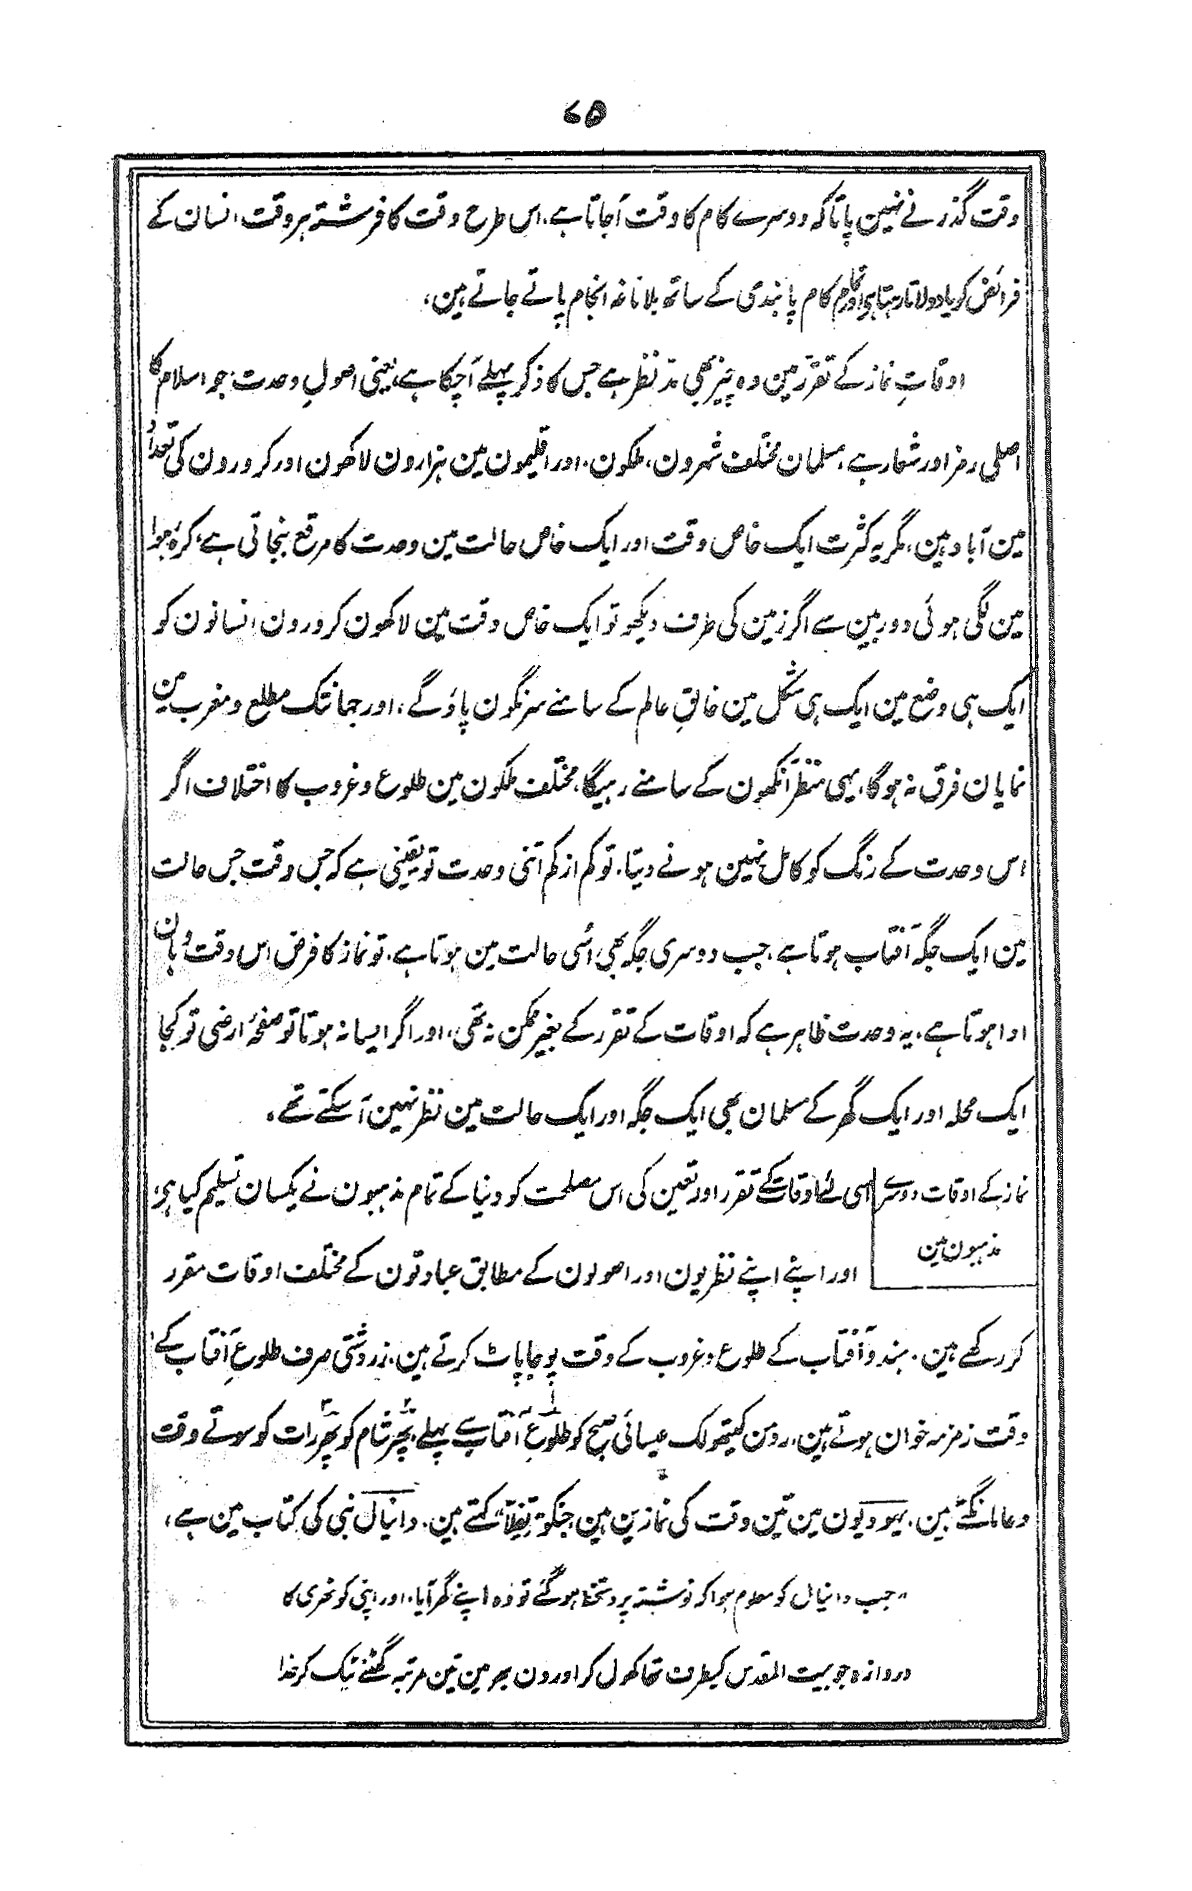 ۷۵
وقت گذرنے نہین پاتا کہ دوسرے کام کا وقت آجاتا ہے، اس طرح وقت کا فرشتہ ہر وقت انسان کے
فرائض کو یاد دلاتا رہتا ہی اور تمام کام پابندی کے ساتھ بلا ناغہ انجام پاتے جاتے ہین،
اوقاتِ نماز کے تقرر مین وہ چیز بھی مدِنظر ہے جس کا ذکر پہلے آچکا ہے، یعنی اصولِ وحدت جو اسلام کا
اصلی رمز اور شعار ہے، مسلمان مختلف شہرون، ملکون، اور اقلیمون مین ہزارون لاکھون اور کرورون کی تعداد
مین آباد ہین، مگر یہ کثرت ایک خاص وقت اور ایک خاص حالت مین وحدت کا مرقع بنجاتی ہے، کرۂ ہوا
مین لگی ہوئی دوربین سے اگر زمین کی طرف دیکھو تو ایک خاص وقت مین لاکھون کرورون انسانون کو
ایک ہی وضع مین ایک ہی شکل مین خالقِ عالم کے سامنے سرنگون پاؤگے، اور جہانتک مطلع و مغرب مین
نمایان فرق نہ ہوگا، یہی منظر آنکھون کے سامنے رہیگا، مختلف ملکون مین طلوع و غروب کا اختلاف اگر
اس وحدت کے رنگ کو کامل نہین ہونے دیتا، تو کم از کم اتنی وحدت تو یقینی ہے کہ جس وقت جس حالت
مین ایک جگہ آفتاب ہوتا ہے، جب دوسری جگہ بھی اُسی حالت مین ہوتا ہے، تو نماز کا فرض اس وقت وہان
ادا ہوتا ہے، یہ وحدت ظاہر ہے کہ اوقات کے تقرر کے بغیر ممکن نہ تھی، اور اگر ایسا نہ ہوتا تو صفحۂ ارضی تو کجا
ایک محلہ اور ایک گھر کے مسلمان بھی ایک جگہ اور ایک حالت مین نظر نہین آسکتے تھے،
نماز کے اوقات دوسرے
مذہبون مین
اسی لئے اوقات کے تقرر اور تعین کی اس مصلحت کو دنیا کے تمام مذہبون نے یکسان تسلیم کیا ہی،
اور اپنے اپنے نظریون اور اصولون کے مطابق عبادتون کے مختلف اوقات مقرر
کر رکھے ہین، ہندو آفتاب کے طلوع و غروب کے وقت پوجا پاٹ کرتے ہین، زردشتی صرف طلوعِ آفتاب کے
وقت زمزمہ خوان ہوتے ہین، رومن کیتھولک عیسائی صبح کو طلوعِ آفتاب سے پہلے، پھر شام کو پھر رات کو سوتے وقت
دعا مانگتے ہین، یہودیون مین تین وقت کی نمازین ہین، جنکو تفلّا" کہتے ہین، دانیال نبی کی کتاب مین ہے،
"جب دانیال کو معلوم ہوا کہ نوشتہ پر دستخط ہوگئے تو وہ اپنے گھر آیا، اور اپنی کوٹھری کا
دروازہ جو بیت المقدس کیطرف تھا کھول کر اور دن بھر مین تین مرتبہ گھٹنے ٹیک کر خدا